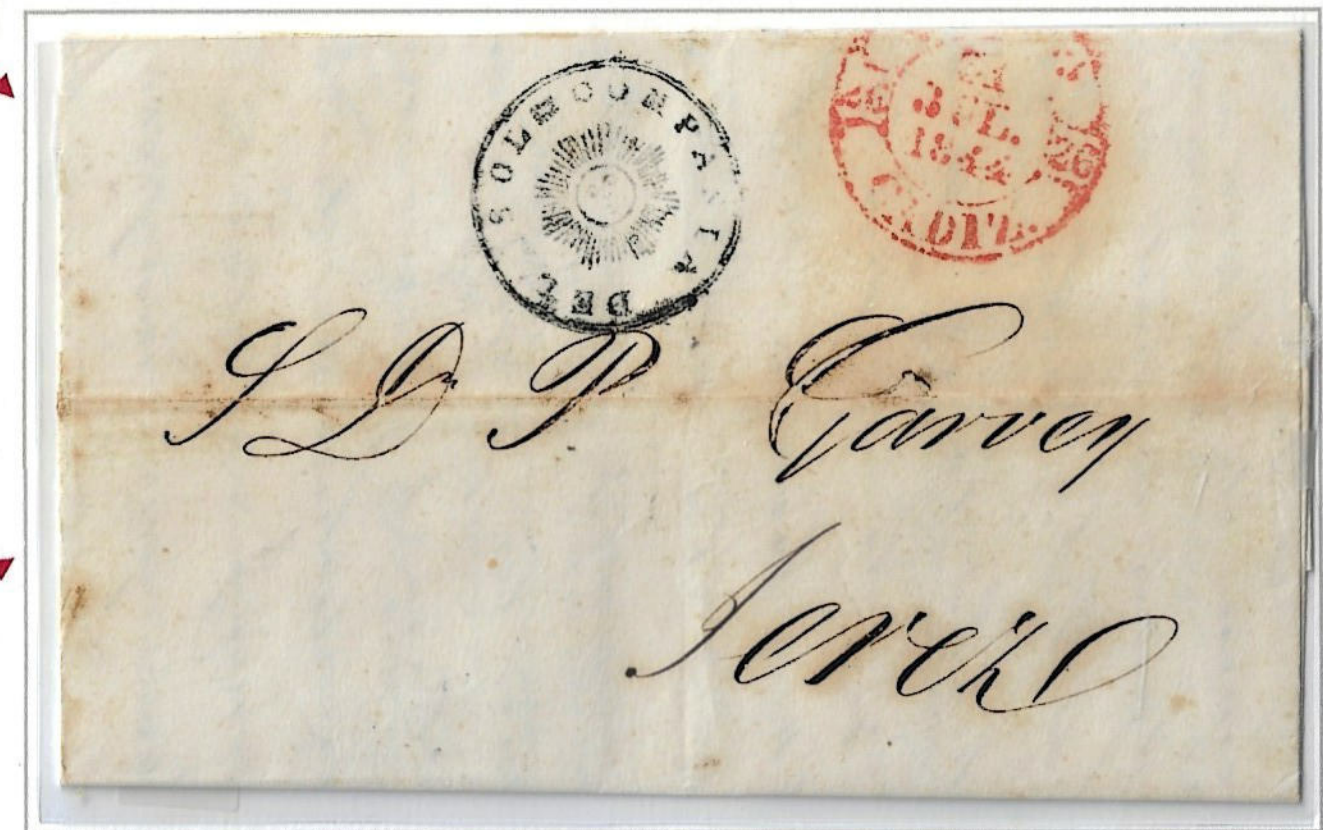 COMPAÑIA DEL SOL
JUL.
1844
CADIZ.
S D P Garvey
Jerez